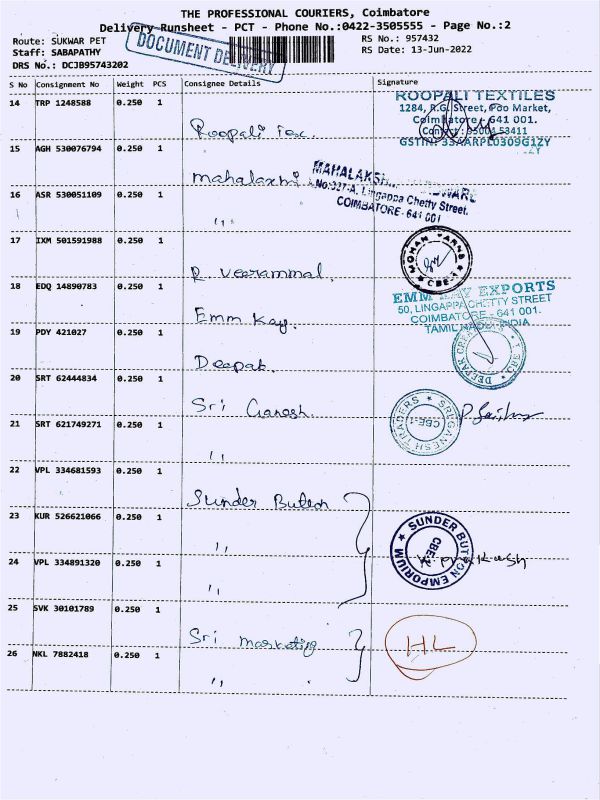 THE PROFESSIONAL COURIERS, Coimbatore
Delivery Runsheet - PCT - Phone No.:0422-3505555 - Page No.:2
Route: SUKWAR PET
RS No.: 957432
Staff: SABAPATHY
RS Date: 13-Jun-2022
DRS No.: DCJB95743202
DOCUMENT DELIVERY
S No Consignment No Weight PCS Consignee Details Signature
14 TRP 1248588 0.250 1
Roopali Tex.
ROOPALI TEXTILES
1284, R.G. Street, Poo Market,
Coimbatore - 641 001.
GSTIN: 33AARPL0309G1ZY
15 AGH 530076794 0.250 1
Mahalaxmi
MAHALAKSHMI
No:327-A, Lingappa Chetty Street.
COIMBATORE - 641 001
16 ASR 530051109 0.250 1
,,
17 IXM 501591988 0.250 1
R. Veerammal.
MOHAN YARNS
CBE-1
18 EDQ 14890783 0.250 1
Emm Kay.
EMM KAY EXPORTS
50, LINGAPPA CHETTY STREET
COIMBATORE - 641 001.
TAMIL NADU, INDIA
19 PDY 421027 0.250 1
Deepak.
20 SRT 62444834 0.250 1
Sri Ganesh.
SRI GANESH TRADERS
CBE-1
21 SRT 621749271 0.250 1
,,
22 VPL 334681593 0.250 1
Sunder Button
23 KUR 526621066 0.250 1
,,
SUNDER BUTTON EMPORIUM
CBE-1
24 VPL 334891320 0.250 1
,,
25 SVK 30101789 0.250 1
Sri marketing
HL
26 NKL 7882418 0.250 1
,,